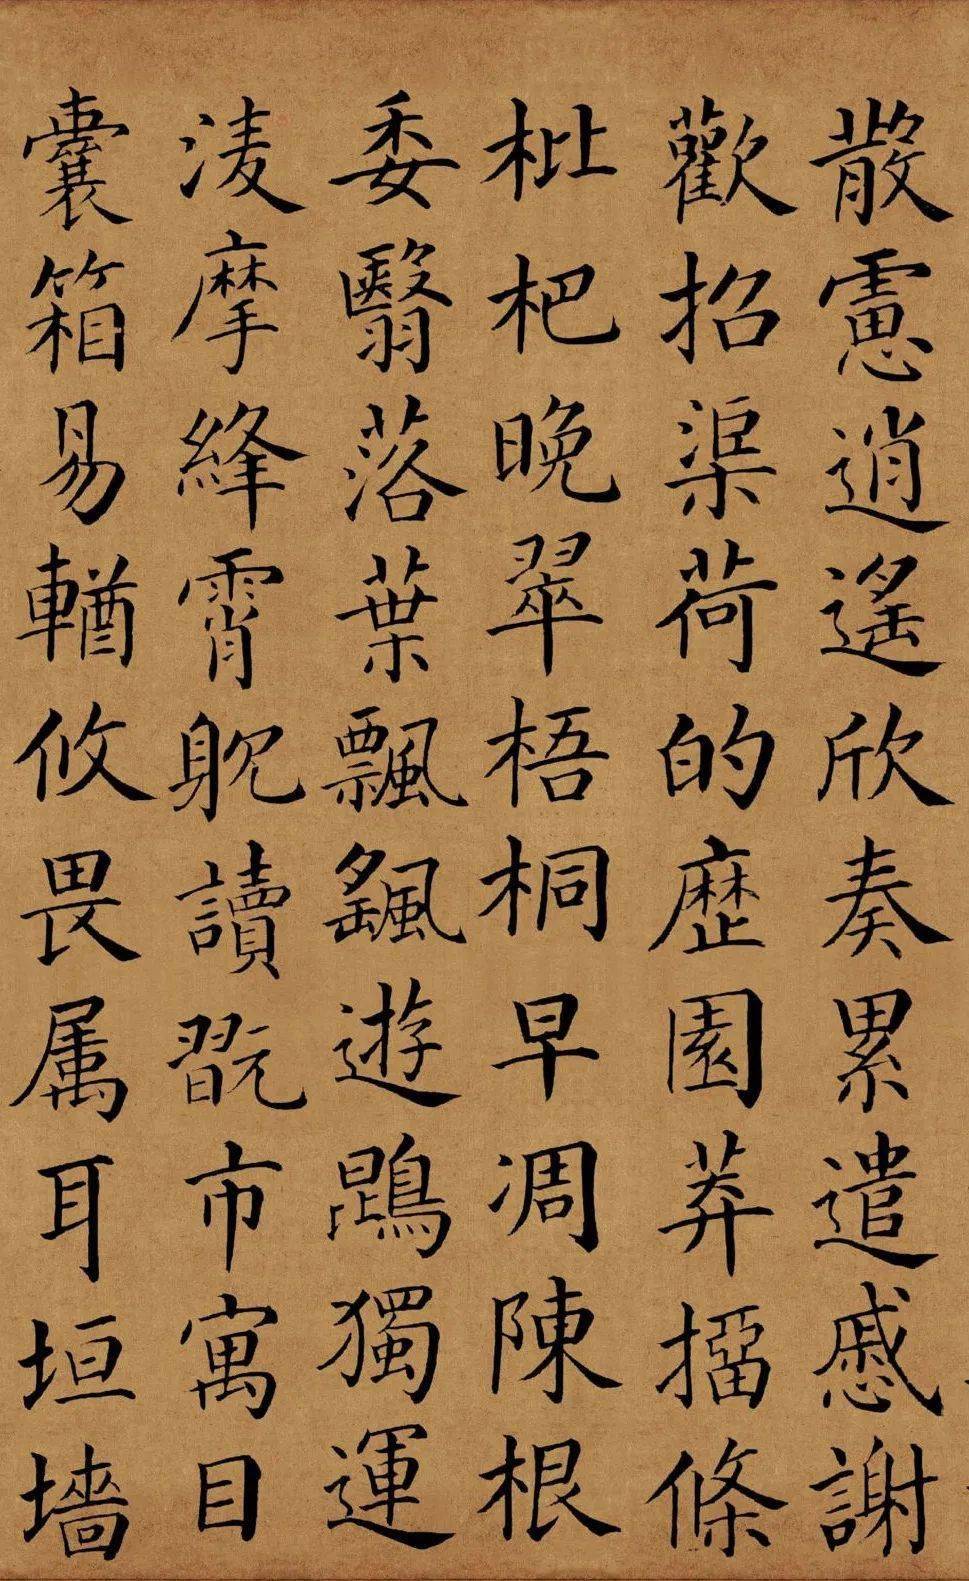 散慮逍遙欣奏累遣慼謝
歡招渠荷的歷園莽摺條
枇杷晚翠梧桐早凋陳根
委翳落葉飄颻遊鵾獨運
凌摩絳霄躭讀翫市寓目
囊箱易輶攸畏属耳垣墻